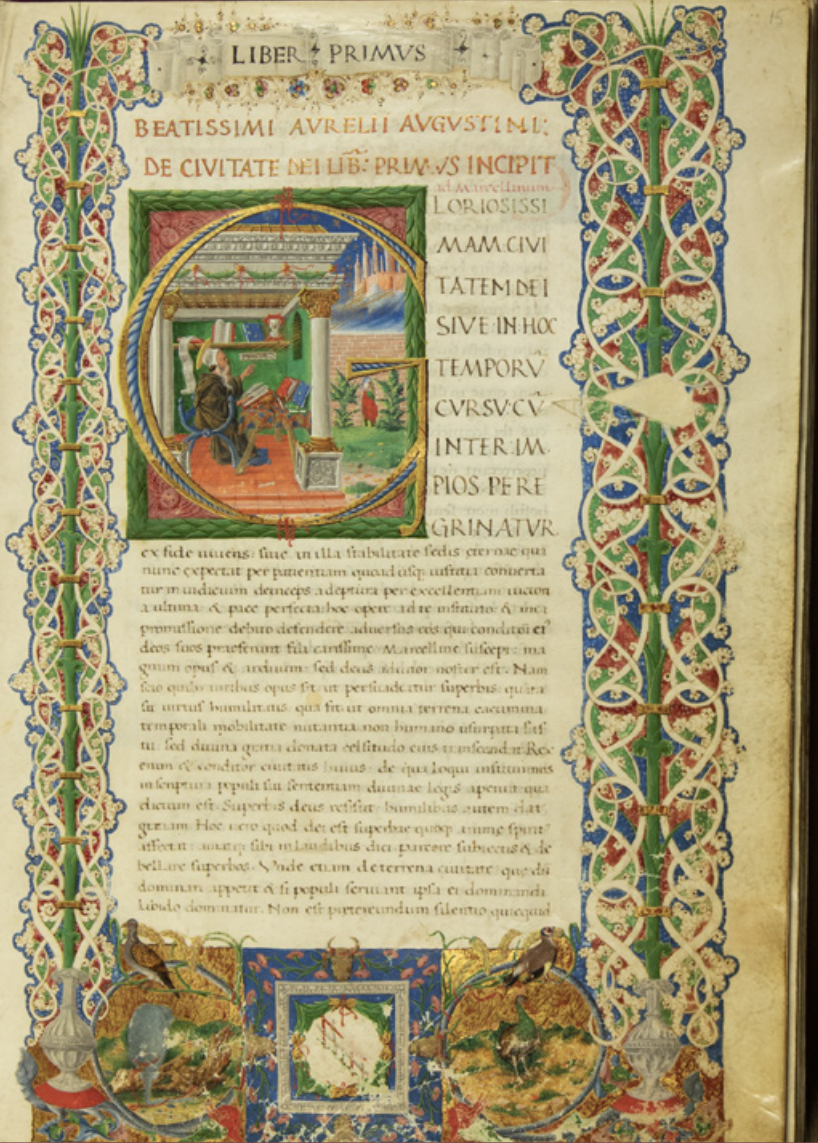 15
LIBER PRIMVS
BEATISSIMI AVRELII AVGVSTINI:
DE CIVITATE DEI LIB̄: PRIMVS INCIPIT
ad Marcellinum
LORIOSISSI
MAM CIVI
TATEM DEI
SIVE IN HOC
TEMPORV̄
CVRSV CV̄
INTER IM
PIOS PERE
GRINATVR
ex fide uiuens: siue in illa stabilitate sedis eternae quā
nunc expectat per patientiam quoad usq; iustitia conuerta
tur in iudicium deinceps adeptura per excellentiam
ultima & pace perfecta: hoc opere ad te instituto & mea
promissione debito defendere aduersus eos qui conditori eiꝰ
deos suos praeferunt fili carissime Marcelline suscepi: ma
gnum opus & arduum: sed deus adiutor noster est. Nam
scio quibꝰ uiribus opus sit ut persuadeatur superbis: quāta
sit uirtus humilitatis: qua fit ut omnia terrena cacumina
temporali mobilitate nutantia non humano usurpata fas
tu: sed diuina gratia donata celsitudo transcendat Rex
enim & conditor ciuitatis huius: de qua loqui instituimus
in scriptura populi sui sententiam diuinae legis aperuit qua
dictum est. Superbis deus resistit: humilibus autem dat
gratiam. Hoc uero quod dei est superbae quoq; animae spiritꝰ
affectat: amatq; sibi in laudibus dici: parcere subiectis & de
bellare superbos. Vnde etiam de terrena ciuitate: que dū
dominari appetit & si populi seruiant ipsa ei dominandi
libido dominatur. Non est pretereundum silentio quicquid